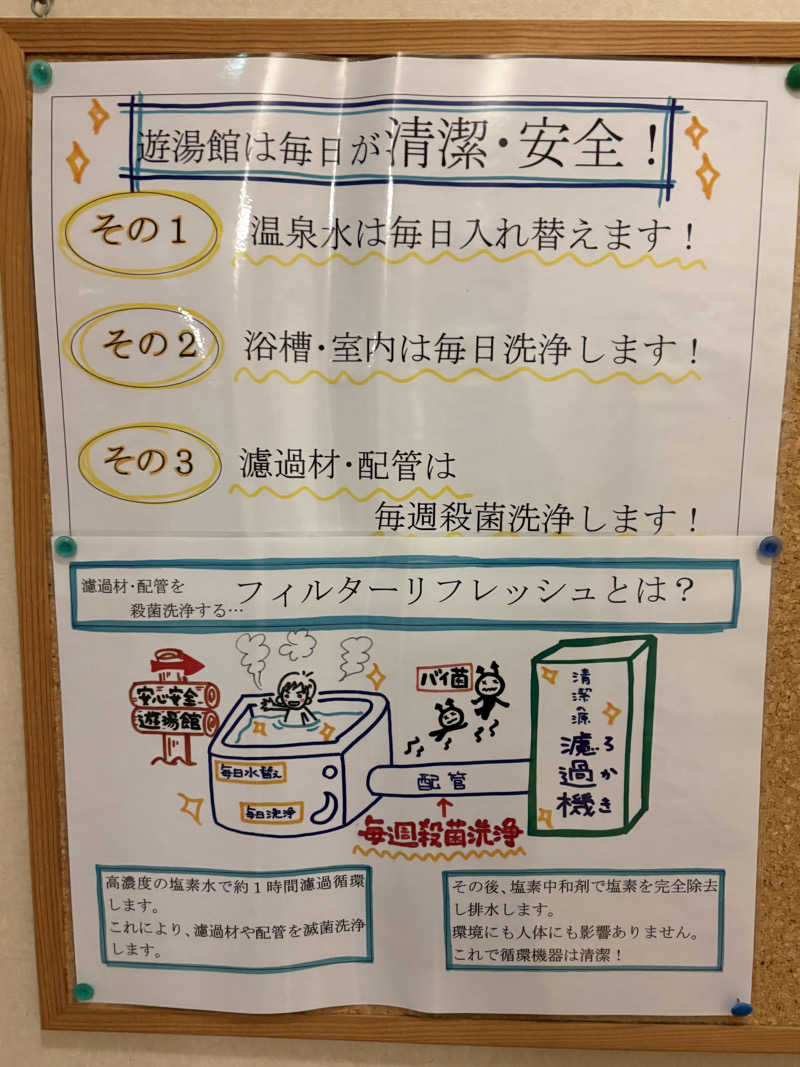 遊湯館は毎日が清潔・安全！
その１
温泉水は毎日入れ替えます！
その２
浴槽・室内は毎日洗浄します！
その３
濾過材・配管は
毎週殺菌洗浄します！
濾過材・配管を
殺菌洗浄する…
フィルターリフレッシュとは？
安心安全
遊湯館
バイ菌
毎日水替え
毎日洗浄
配管
毎週殺菌洗浄
清潔の源
濾過機
ろかき
高濃度の塩素水で約１時間濾過循環
します。
これにより、濾過材や配管を滅菌洗浄
します。
その後、塩素中和剤で塩素を完全除去
し排水します。
環境にも人体にも影響ありません。
これで循環機器は清潔！